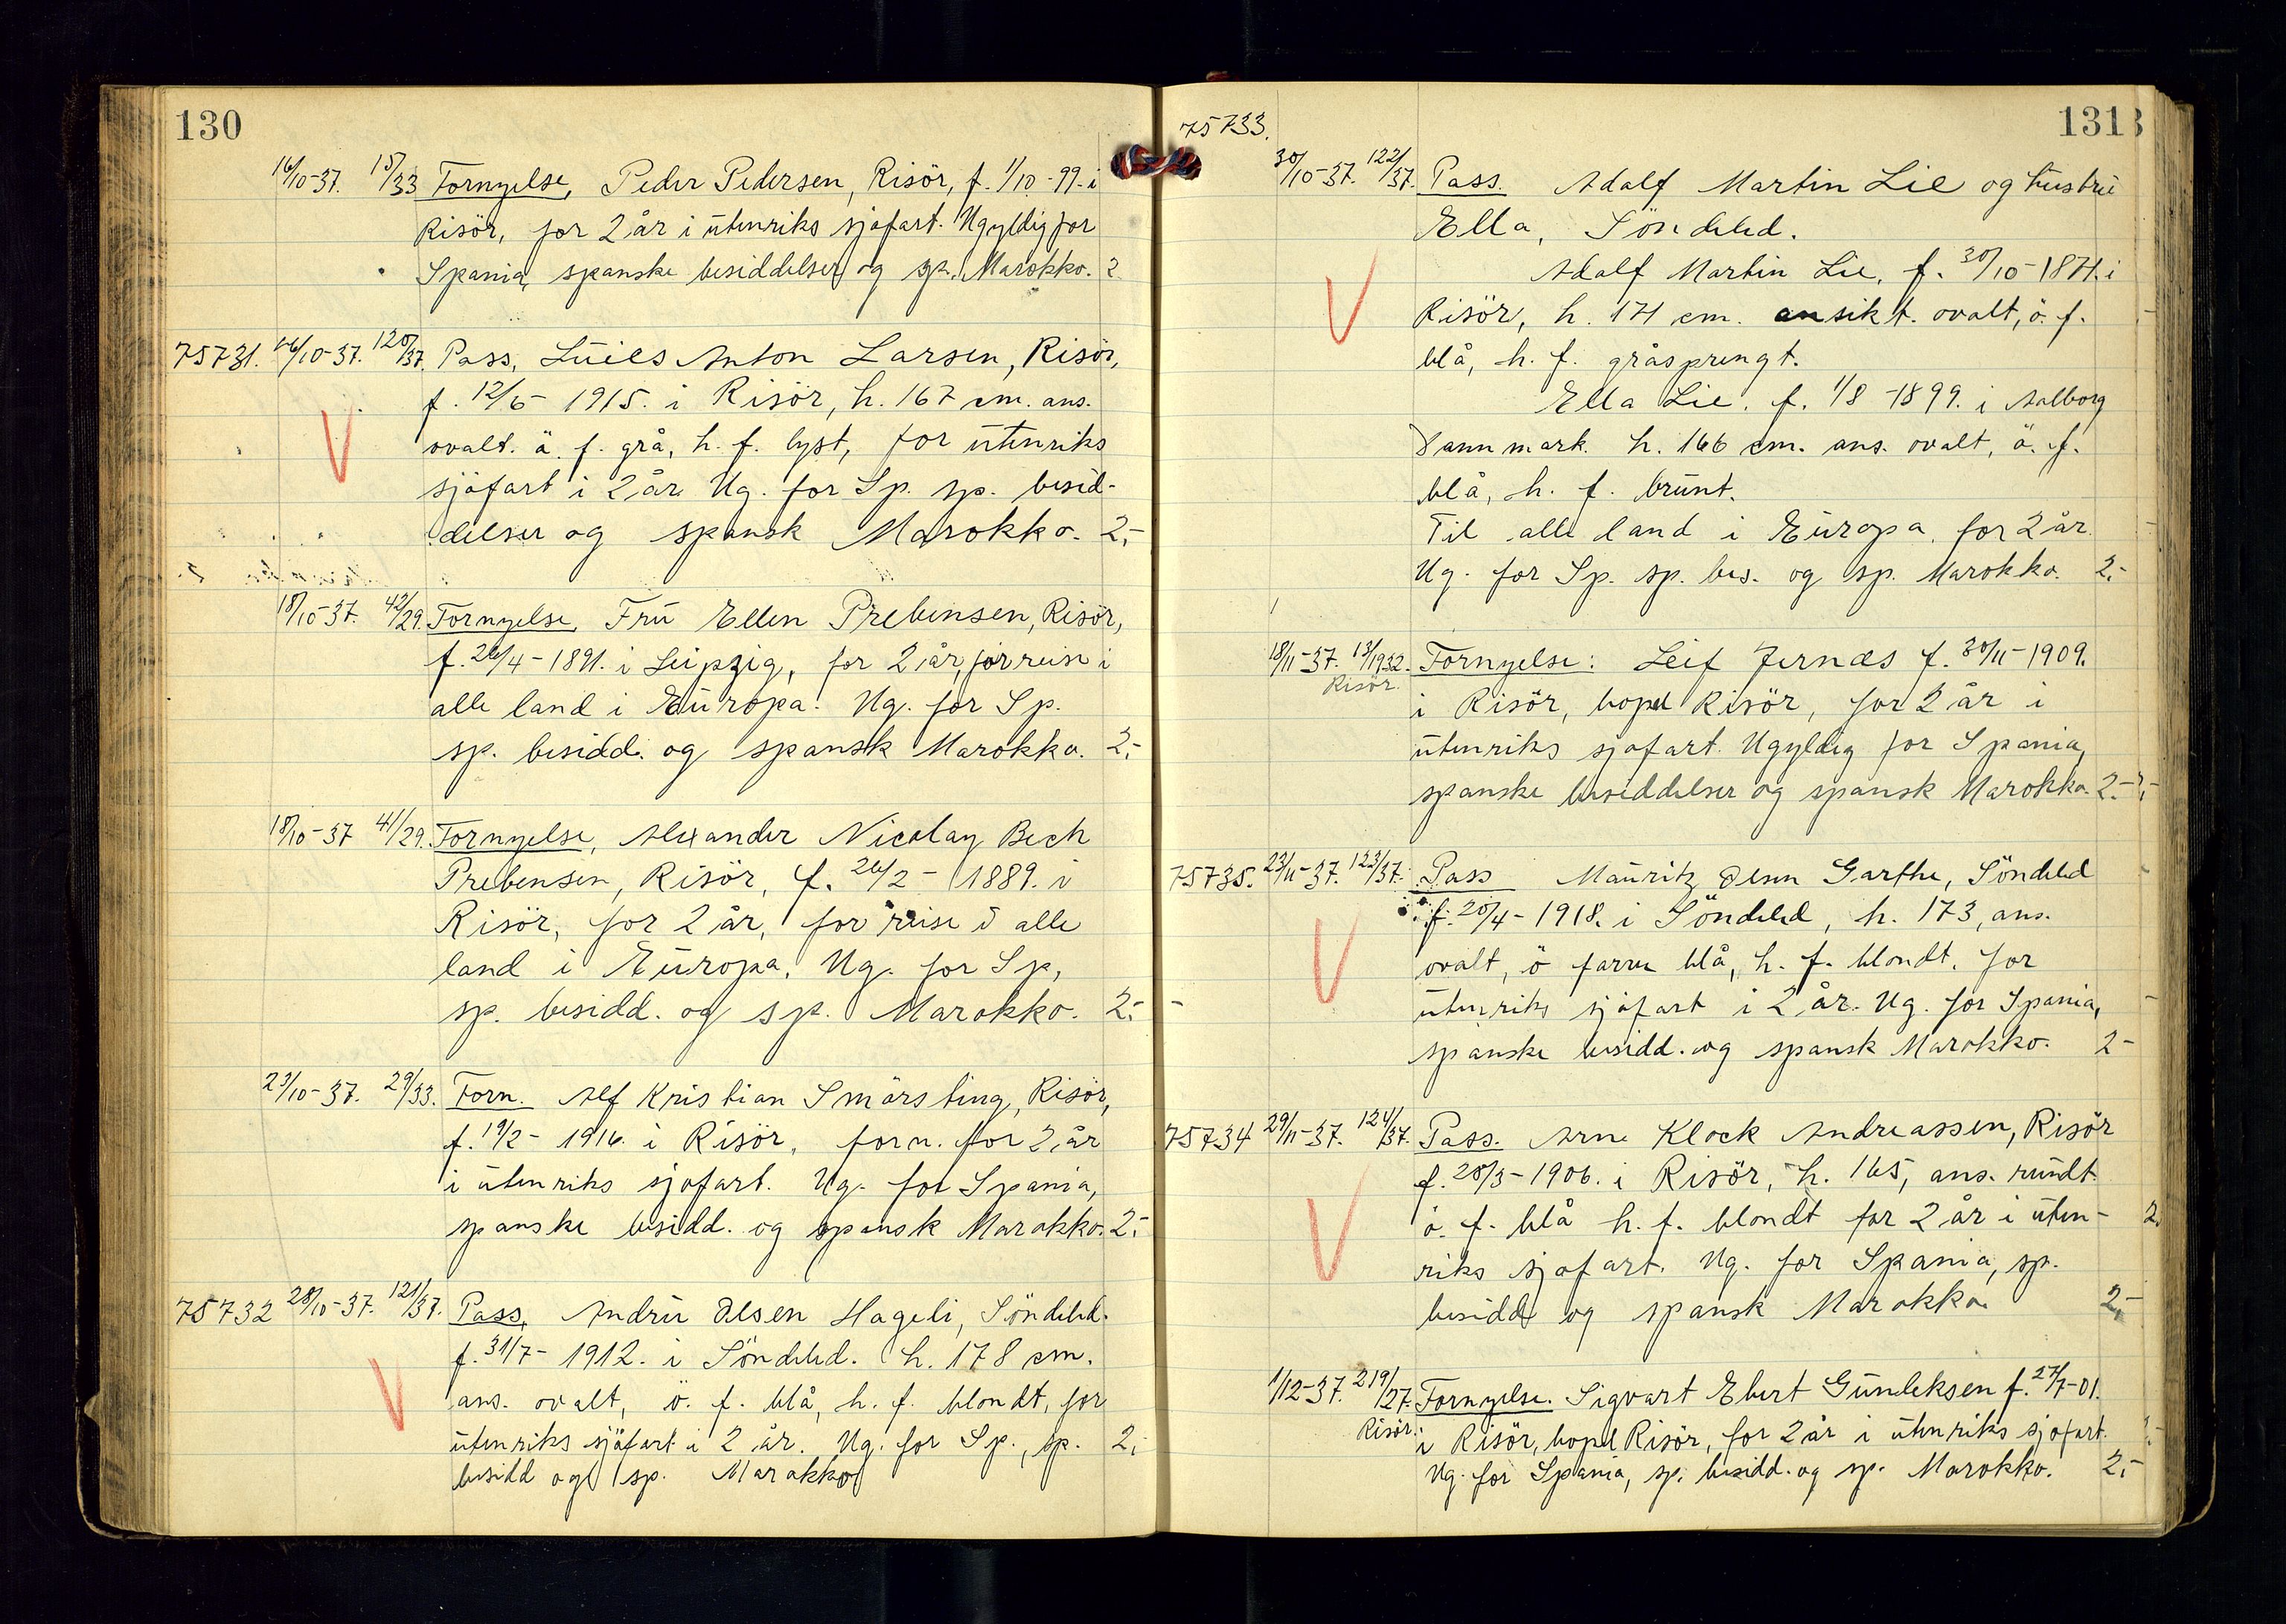 130
16/10-37. 15/33 Fornyelse, Peder Pedersen, Risör, f. 1/10-99. i
Risör, for 2 år i utenriks sjøfart. Ugyldig for
Spania, spanske besiddelser og sp. Marokko. 2
75731. 16/10-37. 120/37. Pass, Luies Anton Larsen, Risör,
f. 12/6-1915. i Risör, h. 167 cm. ans.
ovalt. ö. f. grå, h. f. lyst, for utenriks
sjøfart i 2 år. Ug. for Sp. sp. besid-
delser og spansk Marokko. 2,-
18/10-37. 42/29. Fornyelse, Fru Ellen Prebensen, Risör,
f. 26/4-1891. i Leipzig, for 2 år, for reise i
alle land i Europa. Ug. for Sp.
sp. besidd. og spansk Marokko. 2,-
18/10-37 41/29. Fornyelse, Alexander Nicolay Bech
Prebensen, Risör, f. 26/2-1889. i
Risör, for 2 år, for reise i alle
land i Europa, Ug. for Sp,
sp. besidd. og sp. Marokko. 2,-
23/10-37. 29/33. Forn. Alf Kristian Smørsting, Risör,
f. 19/2-1916. i Risör, forn. for 2 år
i utenriks sjøfart. Ug. for Spania,
spanske besidd. og spansk Marokko. 2,-
75732 28/10-37. 121/37. Pass, Andrü Olsen Hageli, Söndeled.
f. 31/7-1912. i Söndeled. h. 178 cm.
ans. ovalt, ö. f. blå, h. f. blondt, for
utenriks sjøfart i 2 år. Ug. for Sp., sp. 2,-
besidd og sp. Marokko
131
75733.
30/10-37. 122/37. Pass. Adolf Martin Lie og hustru
Ella, Söndeled.
Adolf Martin Lie, f. 30/10-1871. i
Risör, h. 171 cm. ansikt. ovalt, ö. f.
blå, h. f. gråsprengt.
Ella Lie. f. 1/8-1899. i Aalborg
Dannmark. h. 166 cm. ans. ovalt, ö. f.
blå, h. f. brunt.
Til alle land i Europa, for 2 år.
Ug. for Sp. sp. bes. og sp. Marokko. 2,-
18/11-37. 13/1932. Fornyelse: Leif Jernæs f. 30/11-1909.
Risör.
i Risör, bopel Risör, for 2 år i
utenriks sjøfart. Ugyldig for Spania,
spanske besiddelser og spansk Marokko. 2,-
75735. 23/11-37. 123/37. Pass Mauritz Olsen Garthe, Söndeled
f. 20/4-1918. i Söndeled, h. 173, ans.
ovalt, ö farve blå, h. f. blondt, for
utenriks sjøfart i 2 år. Ug. for Spania,
spanske besidd. og spansk Marokko. 2-
75734 29/11-37. 124/37. Pass. Arne Klock Andreassen, Risör
f. 28/3-1906. i Risör, h. 165, ans. rundt
ö. f. blå h. f. blondt for 2 år i uten-
riks sjøfart. Ug. for Spania, sp.
besidd og spansk Marokko. 2,-
1/12-37. 219/27. Fornyelse. Sigvart Ebert Gundeksen f. 27/7-01.
Risör. i Risör, bopel Risör, for 2 år i utenriks sjøfart.
Ug. for Spania, sp. besidd. og sp. Marokko. 2,-